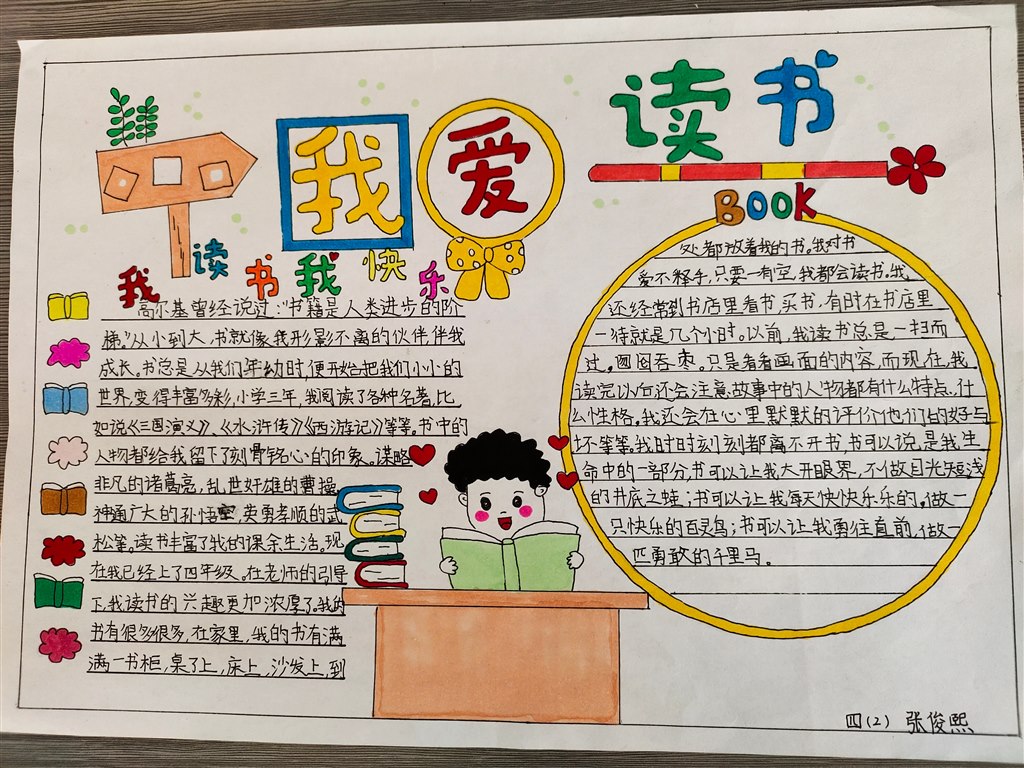 我爱读书
BOOK
我读书我快乐
高尔基曾经说过:“书籍是人类进步的阶
梯。”从小到大,书就像我形影不离的伙伴,伴我
成长。书总是从我们年幼时,便开始把我们小小的
世界,变得丰富多彩,小学三年,我阅读了各种名著,比
如说《三国演义》、《水浒传》《西游记》等等。书中的
人物都给我留下了刻骨铭心的印象。谋略
非凡的诸葛亮,乱世奸雄的曹操,
神通广大的孙悟空,英勇孝顺的武
松等。读书丰富了我的课余生活。现
在我已经上了四年级。在老师的引导
下,我读书的兴趣更加浓厚了。我的
书有很多很多,在家里,我的书有满
满一书柜,桌子上,床上,沙发上,到
处都放着我的书。我对书
爱不释手,只要一有空,我都会读书。我
还经常到书店里看书,买书。有时在书店里
一待就是几个小时。以前,我读书总是一扫而
过。囫囵吞枣。只是看看画面的内容,而现在,我
读完以后还会注意故事中的人物都有什么特点,什
么性格。我还会在心里默默的评价他们的好与
坏等等。我时时刻刻都离不开书,书可以说是我生
命中的一部分,书可以让我大开眼界,不做目光短浅
的井底之蛙;书可以让我每天快快乐乐的,做一
只快乐的百灵鸟;书可以让我勇往直前,做一
匹勇敢的千里马。
四(2) 张俊熙